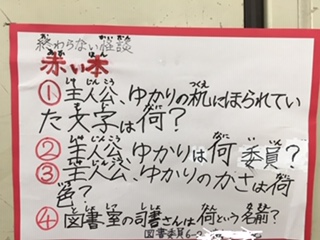 終わらない怪談
赤い本
①主人公、ゆかりの机にほられてい
た文字は何？
②主人公、ゆかりは何委員？
③主人公、ゆかりのかさは何
色？
④図書室の司書さんは何という名前？
図書委員6-2